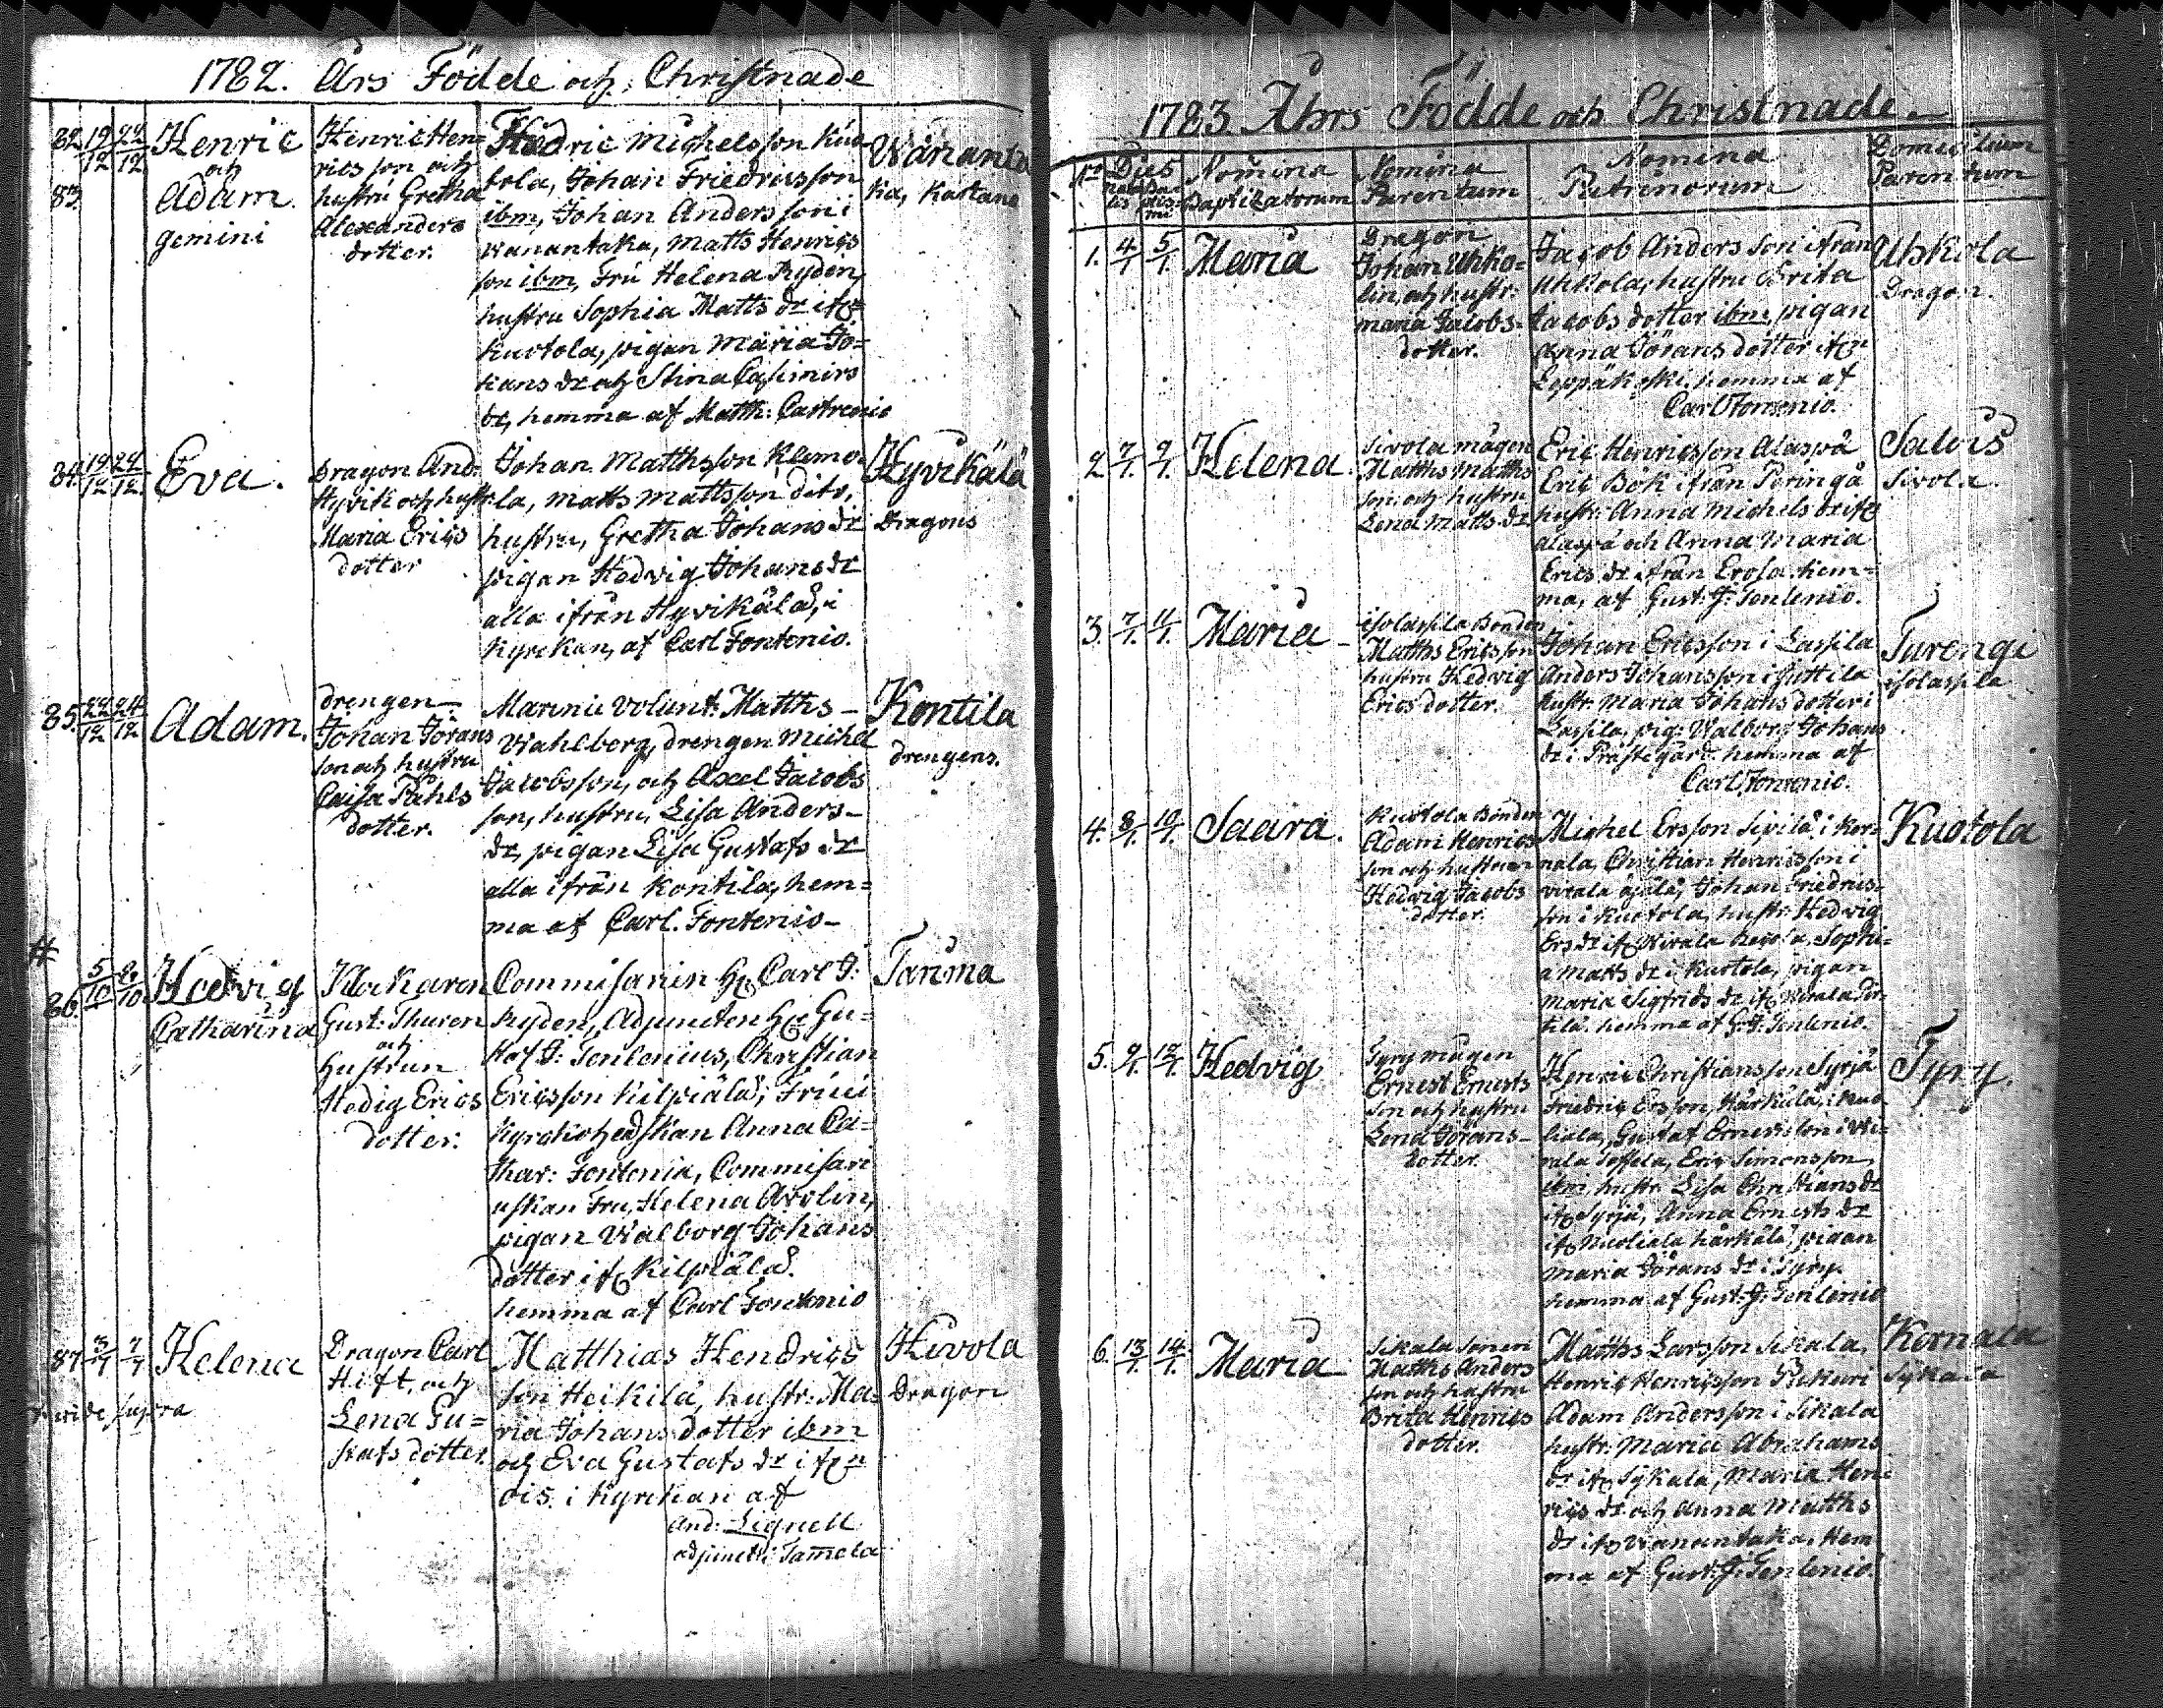 1782. Års Födde och Christnade
82. 19/12 22/12 Henric
och
83. Adam.
gemini
Henric Hen=
rics son och
hustru Gretha
Alexanders
dotter.
Fredric Michelsson Kuo-
tola, Johan Friedricsson
ibm, Johan Andersson i
Wanantaka, Matts Henrics
son ibm, Fru Helena Ryden,
hustru Sophia Matts dr ifr
Kuotola, pigan Maria Jo=
hans dr och Stina Casimirs
dr, hemma af Matth: Castrenio
Kartano
84. 19/12 24/12 Eva.
Dragon And:
Hyvik och hustr.
Maria Erics
dotter
Johan Matthsson Klemo-
la, Matts Mattsson dito,
hustru, Gretha Johans dr
pigan Hedvig Johans dr
alla ifrån Hyvikälä, i
Kyrckan, af Carl Fontenio.
Hyvikälä
Dragons
85. 22/12 24/12 Adam.
drengen
Johan Jörans
son och hustru
Caisa Påhls
dotter.
Marinie volunt: Matths
Wahlberg, drengen Michel
Jacobsson, och Axel Jacobs
son, hustru, Lisa Anders-
dr, pigan Lisa Gustafs dr
alla ifrån Kontila, hem=
ma af Carl. Fontenio-
Kontila
drengens.
#
86. 5/10 6/10 Hedvig
Catharina
Klockaren
Gust: Thuren
och
hustrun
Hedig Erics
dotter:
Commisarien Hr Carl J:
Ryden, Adjuncten Hr Gu=
staf J: Tenlenius, Christian
Ericsson Kilpiälä; Fru
Kyrckioherdskan Anna Ca=
thar: Fontenia, Commisari
uskan Fru, Helena Avolin,
pigan Walborg Johans
dotter ifr Kilpiälä.
hemma af Carl Fontenio
Tarima
87. 3/7 7/7 Helena
vide supra
Dragon Carl
Hift, och
Lena Gu=
stafs dotter.
Matthias Hendrics
son Heikilä, hustr: Ma-
ria Johans dotter ibm
och Eva Gustafs dr ifr
i Kyrckan af
And: Lignell
adjunct i Tam̄ela
Hivola
Dragon
1783. Åhrs Födde och Christnade.
No Dies Nomina Nomina Nomina Domicilium
Baptizatorum Parentum Patrinorum Parentum
1. 4/1 5/1. Maria
Dragon
Johan Uhko=
lin, och hustr:
Maria Jacobs-
dotter.
Jacob Andersson ifrån
Uhkola, hustru Brita
Jacobs dotter ibm, pigan
Anna Jörans dotter ifr
Leppäkoski. hemma af
Carl Fontenio.
Uhkola
Dragon.
2. 7/1. 9/1. Helena.
Sivola mågen
Matths Matths
son och hustru
Lena Matts dr
Eric Henricsson Alaspä
Eric Bok ifrån Peringå
hustr: Anna Michels dr ifr
Alaspä och Anna Maria
Erics dr ifrån Erola. hem=
ma, af Gust: J: Tenlenio.
Salois
Sivola.
3. 7/1. 11/1. Maria
isolassila Bonden
Matths Ericsson
hustru Hedvig
Erics dotter.
Johan Ericsson i Lassila
Anders Johansson i Juttila
hustr: Maria Johans dotter i
Lassila, pig: Walborg Johans
dr i Prästegård. hemma af
Carl Fontenio.
Turengi
isolassila
4. 8/1. 10/1. Saara.
Kuotola Bonden
Adam Henrics
son och hustrun
Hedvig Jacobs
dotter.
Michel Ersson Sipilä, i Ker-
nala, Christian Henricsson i
Johan Friedrics-
son i Kuotola, hustr: Hedvig
Sophi-
a Matts dr i Kuotola, pigan
Maria Sigfrids dr ifr Wirala Pir-
tilä. hemma af G: J: Tenlenio.
Kuotola
5. 9/1. 12/1. Hedvig
Tyry mågen
Ernest Ernests
son och hustru
Lena Jörans-
dotter.
Henric Christiansson Syrjä
Friedric Ersson, Härkälä, i Nuo
liala, Gustaf Ernestsson i Wi-
rala Seffela, Eric Simonsson
ibm, hustr: Lisa Christians dr
ifr Syrjä, Anna Ernests dr
ifr Nuoliala Härkälä, pigan
Maria Jörans dr i Tyry.
hemma af Gust: J: Tenlenio
Tyry.
6. 13/1. 14/1. Maria
Sikala sonen
Matths Anders
son och hustru
Brita Henrics
dotter.
Matths Larsson Sikala,
Henric Henricsson Pekuri
Adam Andersson i Sikala
hustr: Maria Abrahams
dr ifr Sykala, Maria Hen-
rics dr och Anna Matths
dr ifr Wanantaka. Hem
ma af Gust: J: Tenlenio.
Kernala
Sykala